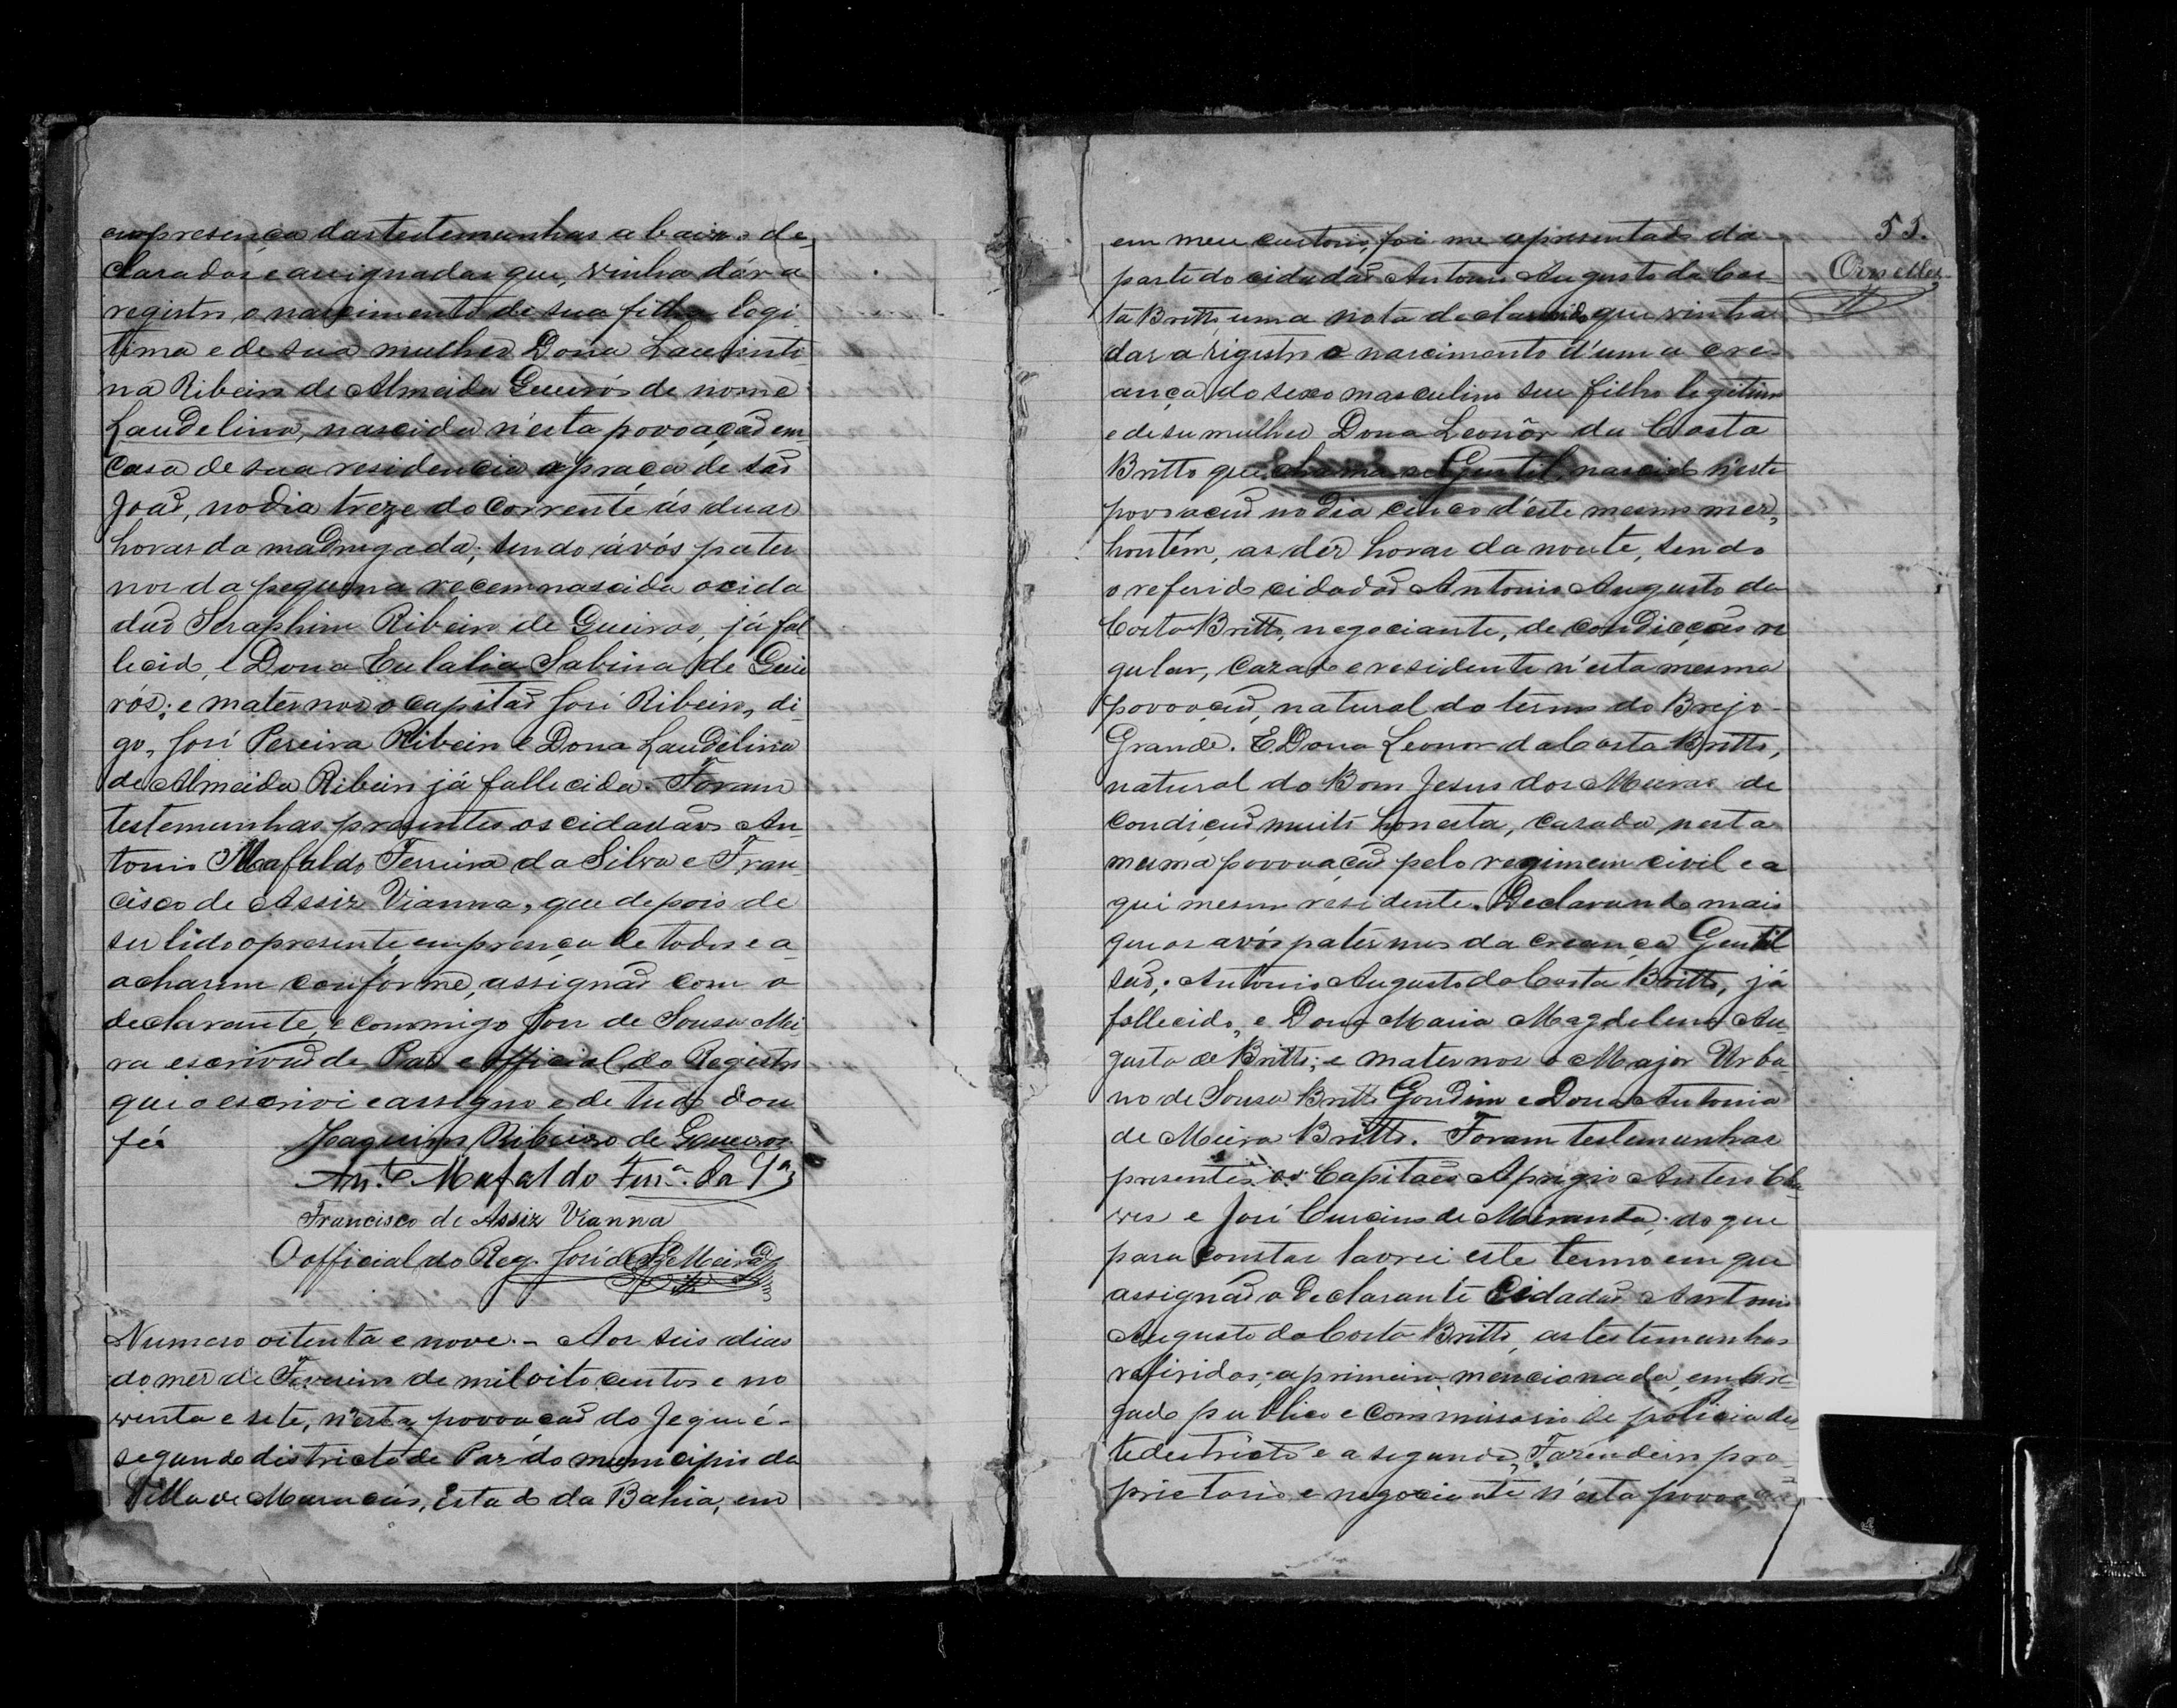 em presença das testemunhas abaixo de-
claradas e assignadas que, vinha dár a
registro o nascimento de sua filha legi
tima e de sua mulher Dona Laurinti
na Ribeiro de Almeida Gueirós de nome
Laudelina, nascida n'esta povoação em
casa de sua residencia a praça de São
João, no dia treze do corrente ás duas
horas da madrugada; sendo ávós pater
nos da pequena recemnascida o cida
dão Seraphim Ribeiro de Gueiros, já fal
lecido, e Dona Eulalia Sabina de Guei
rós; e maternos o capitão José Ribeiro, di-
go, José Pereira Ribeiro e Dona Laudelina
de Almeida Ribeiro já fallecida. Foram
testemunhas presentes os cidadãos An
tonio Mafaldo Ferreira da Silva e Fran
cisco de Assiz Vianna, que depois de
ser lido o presente, em presença de todos e a
acharem conforme, assignão com o
declarante, e commigo José de Sousa Mei
ra escrivão de Paz e Official do Registro
que o escrivi e assigno e de tudo dou
fé.
Joaquim Ribeiro de Gueiros
Ant.º Mafaldo Ferr.ª da S.ª
Francisco de Assiz Vianna
O official do Reg. José de Sz.ª Meira
Numero oitenta e nove. - Aos seis dias
do mez de Fevereiro de mil oito centos e no
venta e sete, n'esta povoação do Jequié -
segundo districto de Paz do municipio da
Villa de Maracás, Estado da Bahia, em
55.
Ornellas
em meu cartorio, foi me apresentado da
parte do cidadão Antonio Augusto da Cos-
ta Britto uma nota declarando que vinha
dar a rigistro o nascimento d'uma cre-
ança do sexo masculino seu filho legitimo
e de su mulher Dona Leonôr da Costa
Britto que chama-se Gentil, nascido n'esta
povoação no dia cinco d'éste mesmo mez,
hontem, as déz horas da noute, sendo
o referido cidadão Antonio Augusto da
Costa Britto, negociante, de condicção re
gular, cazado e residente n'esta mesma
povoação, natural do termo do Brejo-
Grande. E Dona Leonor da Costa Britto,
natural do Bom Jesus dos Meiras de
condição muito honesta, casada nesta
mesma povoação pelo regimem civil e a
qui mesmo residente. Declarando mais
que os avós paternos da creança Gentil
são: Antonio Augusto da Costa Britto, já
fallecido, e Dona Maria Magdalena Au
gusta de Britto; e maternos o Major Urba
no de Sousa Britto Gondim e Dona Antonia
de Meira Britto. Foram testemunhas
presentes os Capitães Aprigio Antero Cha
ves e José Curcino de Miranda; do que
para constar lavrei este termo em que
assignão o declarante Cidadão Antonio
Augusto da Costa Britto, as testemunhas
refiridas; a primeira, mencionada, empre
gado publico e commissario de policia des
te destricto e a segunda, Fazendeiro pro
prietario e negociante n'esta povoação